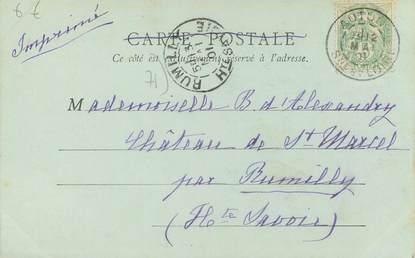 6 €
Imprimé
CARTE POSTALE
Ce côté est exclusivement réservé à l'adresse.
AUTUN
12
MAI
01
SAÔNE-ET-LOIRE
RUMILLY
71
Mademoiselle B. d'Alexandry
Château de St Marcel
par Rumilly
(Hte Savoie)